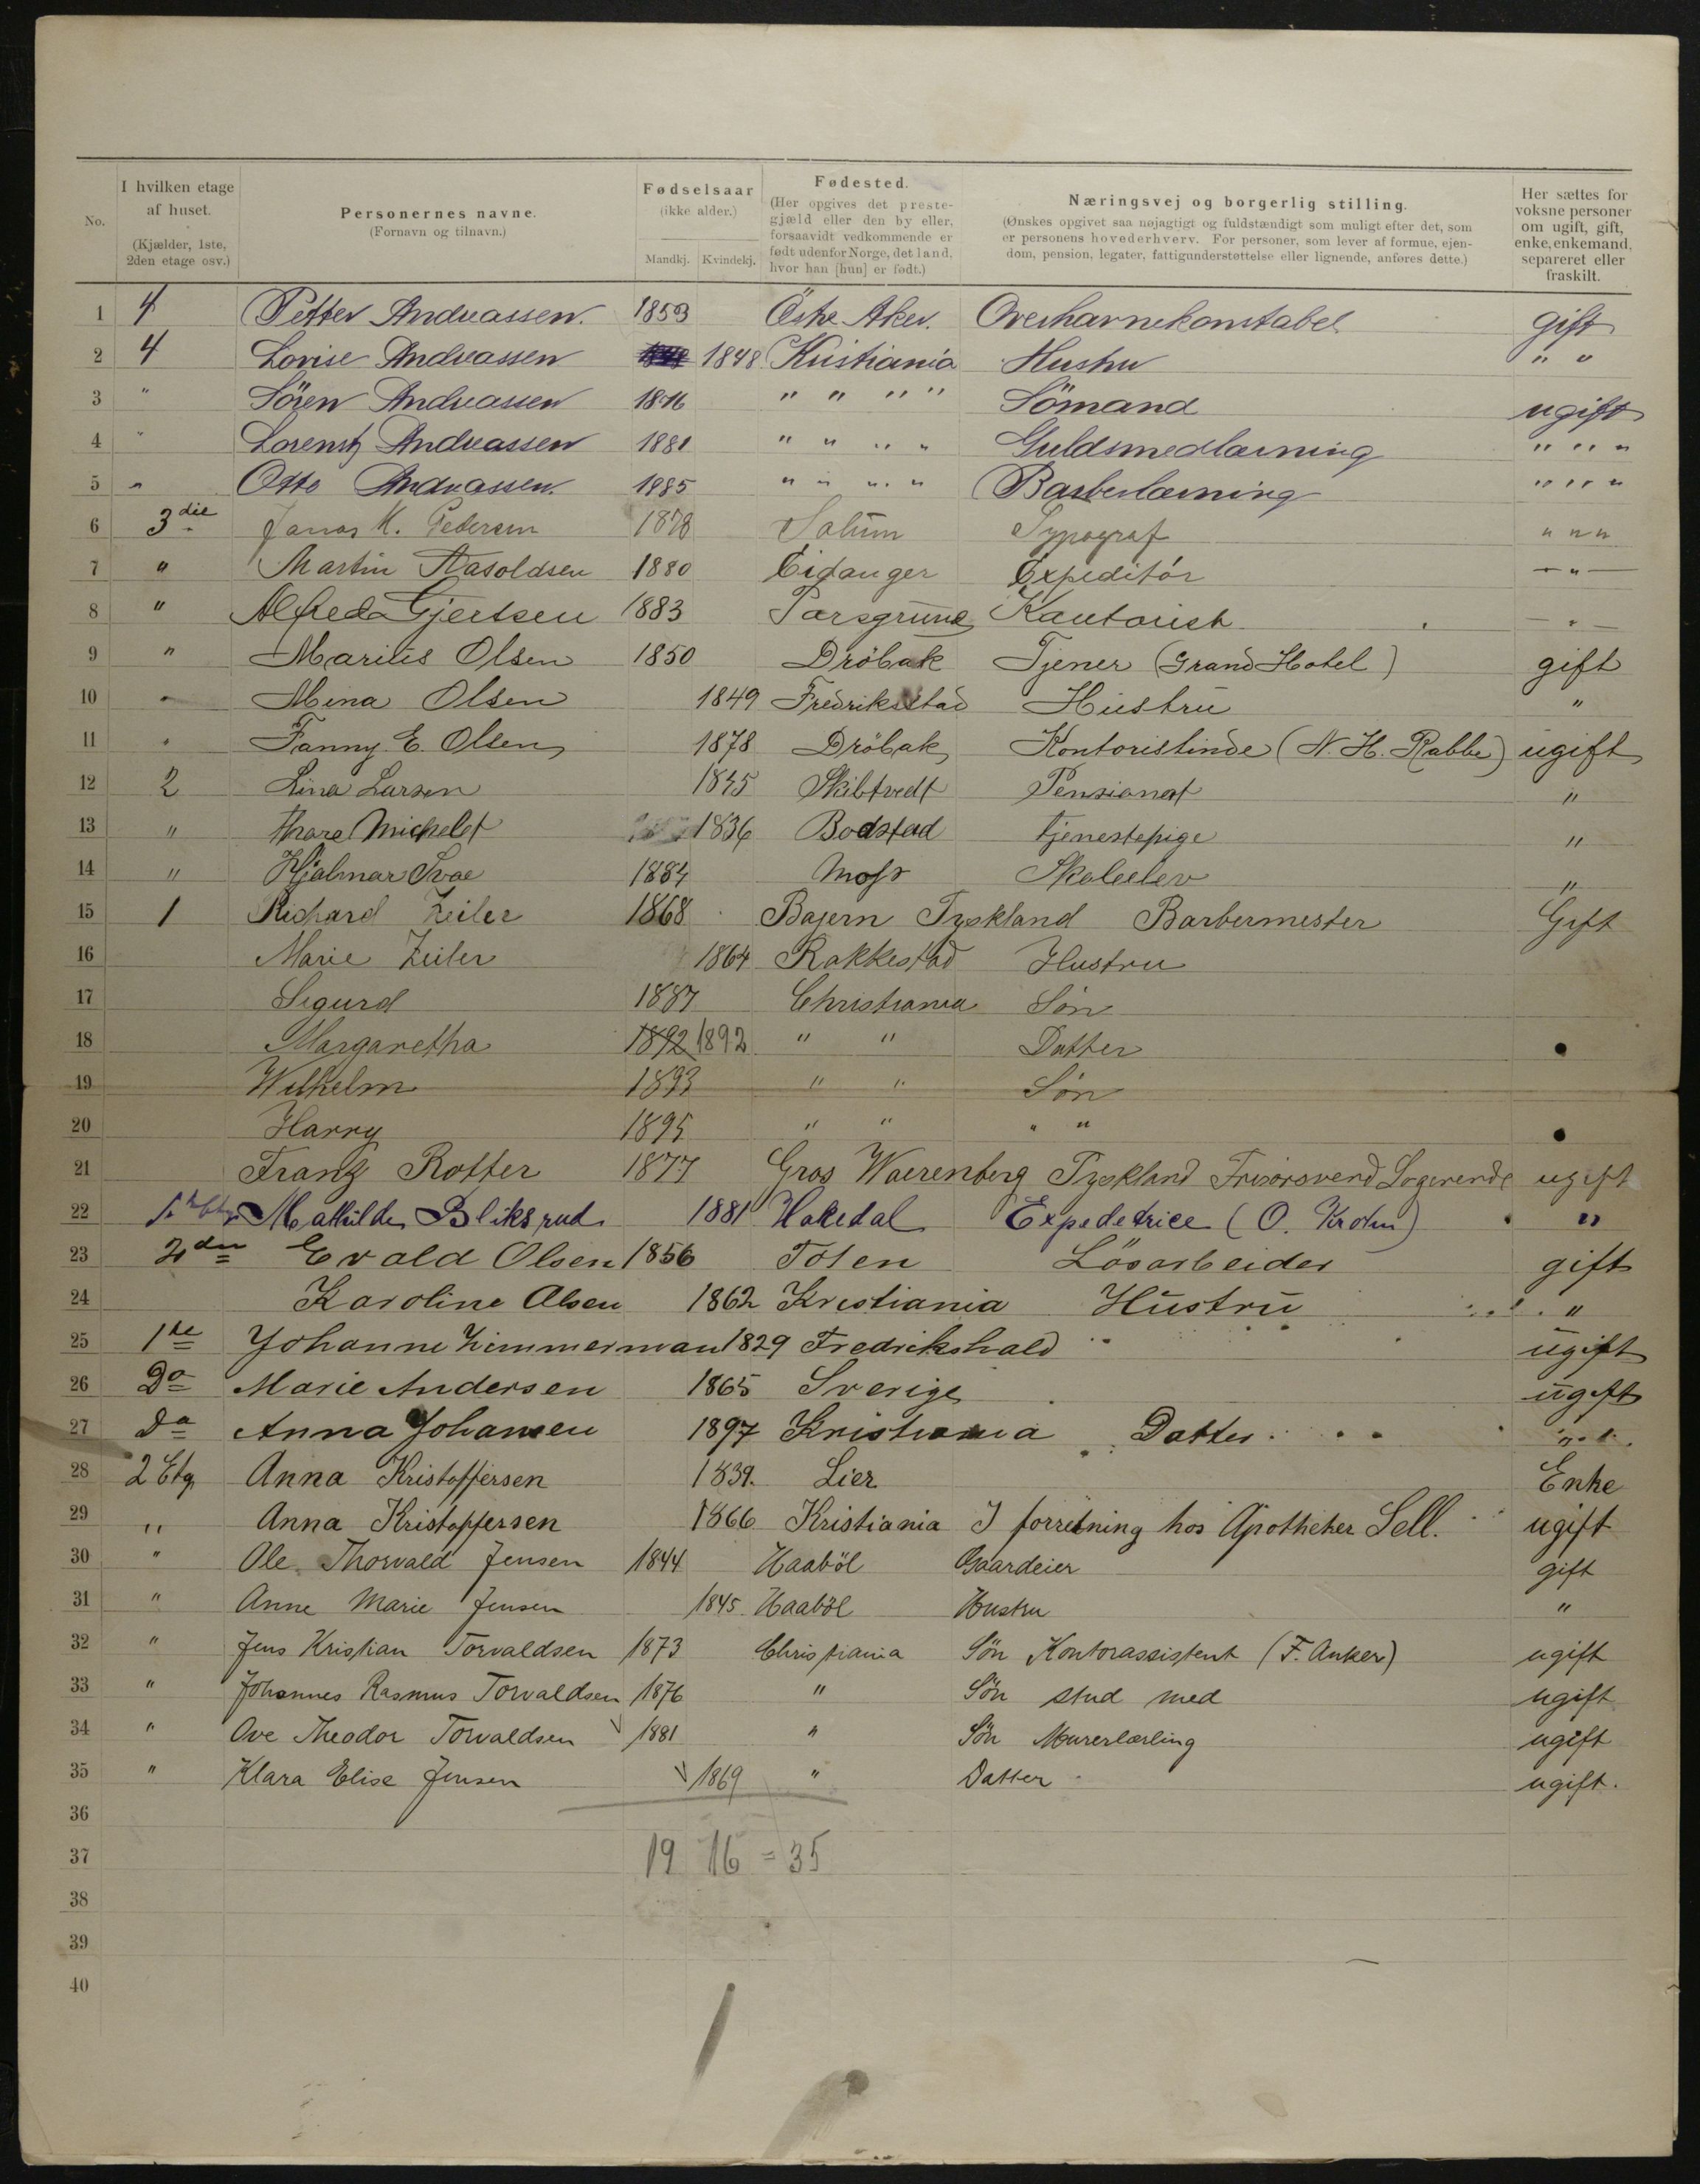 No. | I hvilken etage af huset. (Kjælder, 1ste, 2den etage osv.) | Personernes navne. (Fornavn og tilnavn.) | Fødselsaar (ikke alder.) Mandkj. Kvindekj. | Fødested. (Her opgives det prestegjæld eller den by eller, forsaavidt vedkommende er født udenfor Norge, det land, hvor han [hun] er født.) | Næringsvej og borgerlig stilling. (Ønskes opgivet saa nøjagtigt og fuldstændigt som muligt efter det, som er personens hovederhverv. For personer, som lever af formue, ejendom, pension, legater, fattigunderstøttelse eller lignende, anføres dette.) | Her sættes for voksne personer om ugift, gift, enke, enkemand, separeret eller fraskilt.
1 4 Petter Andreassen. 1853 Östre Aker. Overhavnekonstabel gift
2 4 Lovise Andreassen 1848 Kristiania Hustru " "
3 " Sören Andreassen 1876 " " " " Sömand ugift
4 " Lorentz Andreassen 1881 " " " " Guldsmedlærning " " "
5 " Otto Andreassen. 1885 " " " " Barberlærning " " "
6 3die Jonas K. Pedersen 1878 Solum Typograf " " "
7 " Martin Aasoldsen 1880 Eidanger Expeditör — " —
8 " Alfred Gjertsen 1883 Porsgrund Kontorist — " —
9 " Marius Olsen 1850 Dröbak Tjener (Grand Hotel) gift
10 " Mina Olsen 1849 Fredriksstad Hustru "
11 " Fanny E. Olsen 1878 Dröbak Kontoristinde (N. H. Rabbe) ugift
12 2 Lina Larsen 1845 Skibtvedt Pensionat "
13 " Thore Michelet 1836 Bodstad tjenestepige "
14 " Hjalmar Svae 1884 Moss Skoleelev "
15 1 Richard Zeiler 1868 Bajern Tyskland Barbermester Gift
16 Marie Zeiler 1864 Rakkestad Hustru
17 Sigurd 1887 Christiania Sön
18 Margaretha 1892 1892 " " Datter
19 Wilhelm 1893 " " Sön
20 Harry 1895 " " " "
21 Franz Rotter 1877 Gros Waerenberg Tyskland Frisörsvend Logerende ugift
22 Mathilde Bliksrud 1881 Hakedal Expedetrice (O. Krohn) "
23 2den Evald Olsen 1856 Toten Lösarbeider gift
24 Karoline Olsen 1862 Kristiania Hustru "
25 1ste Johanne Zimmerman 1829 Fredrikshald ugift
26 Do Marie Andersen 1865 Sverige ugift
27 Do Anna Johansen 1897 Kristiania Datter "
28 2 Etg Anna Kristoffersen 1839. Lier Enke
29 " Anna Kristoffersen 1866 Kristiania I forretning hos Apotheker Sell. ugift
30 " Ole Thorvald Jensen 1844 Haaböl Gaardeier gift
31 " Anne Marie Jensen 1845 Haaböl Hustru "
32 " Jens Kristian Torvaldsen 1873 Christiania Sön Kontorassistent (F. Anker) ugift
33 " Johannes Rasmus Torvaldsen 1876 " Sön stud med ugift
34 " Ove Theodor Torvaldsen 1881 " Sön Murerlærling ugift
35 " Klara Elise Jensen 1869 " Datter ugift.
36
37 19 16 = 35
38
39
40